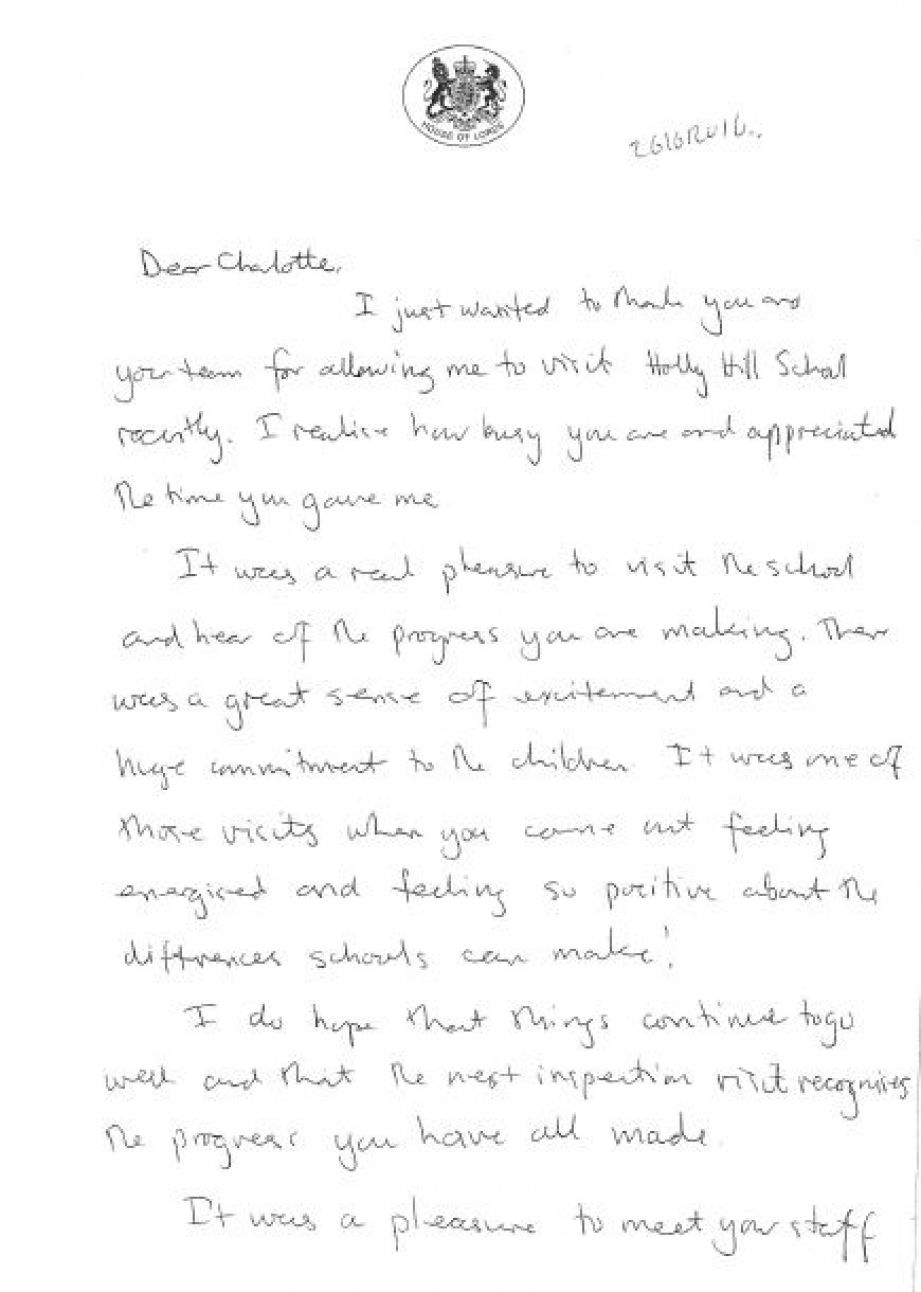 HOUSE OF LORDS
Dear Charlotte,
I just wanted to thank you and
your team for allowing me to visit Holly Hill School
recently. I realise how busy you are and appreciated
the time you gave me
It was a real pleasure to visit the school
and hear of the progress you are making. There
was a great sense of excitement and a
huge commitment to the children. It was one of
those visits when you came out feeling
energised and feeling so positive about the
differences schools can make!
I do hope that things continue to go
well and that the next inspection visit recognises
the progress you have all made.
It was a pleasure to meet your staff